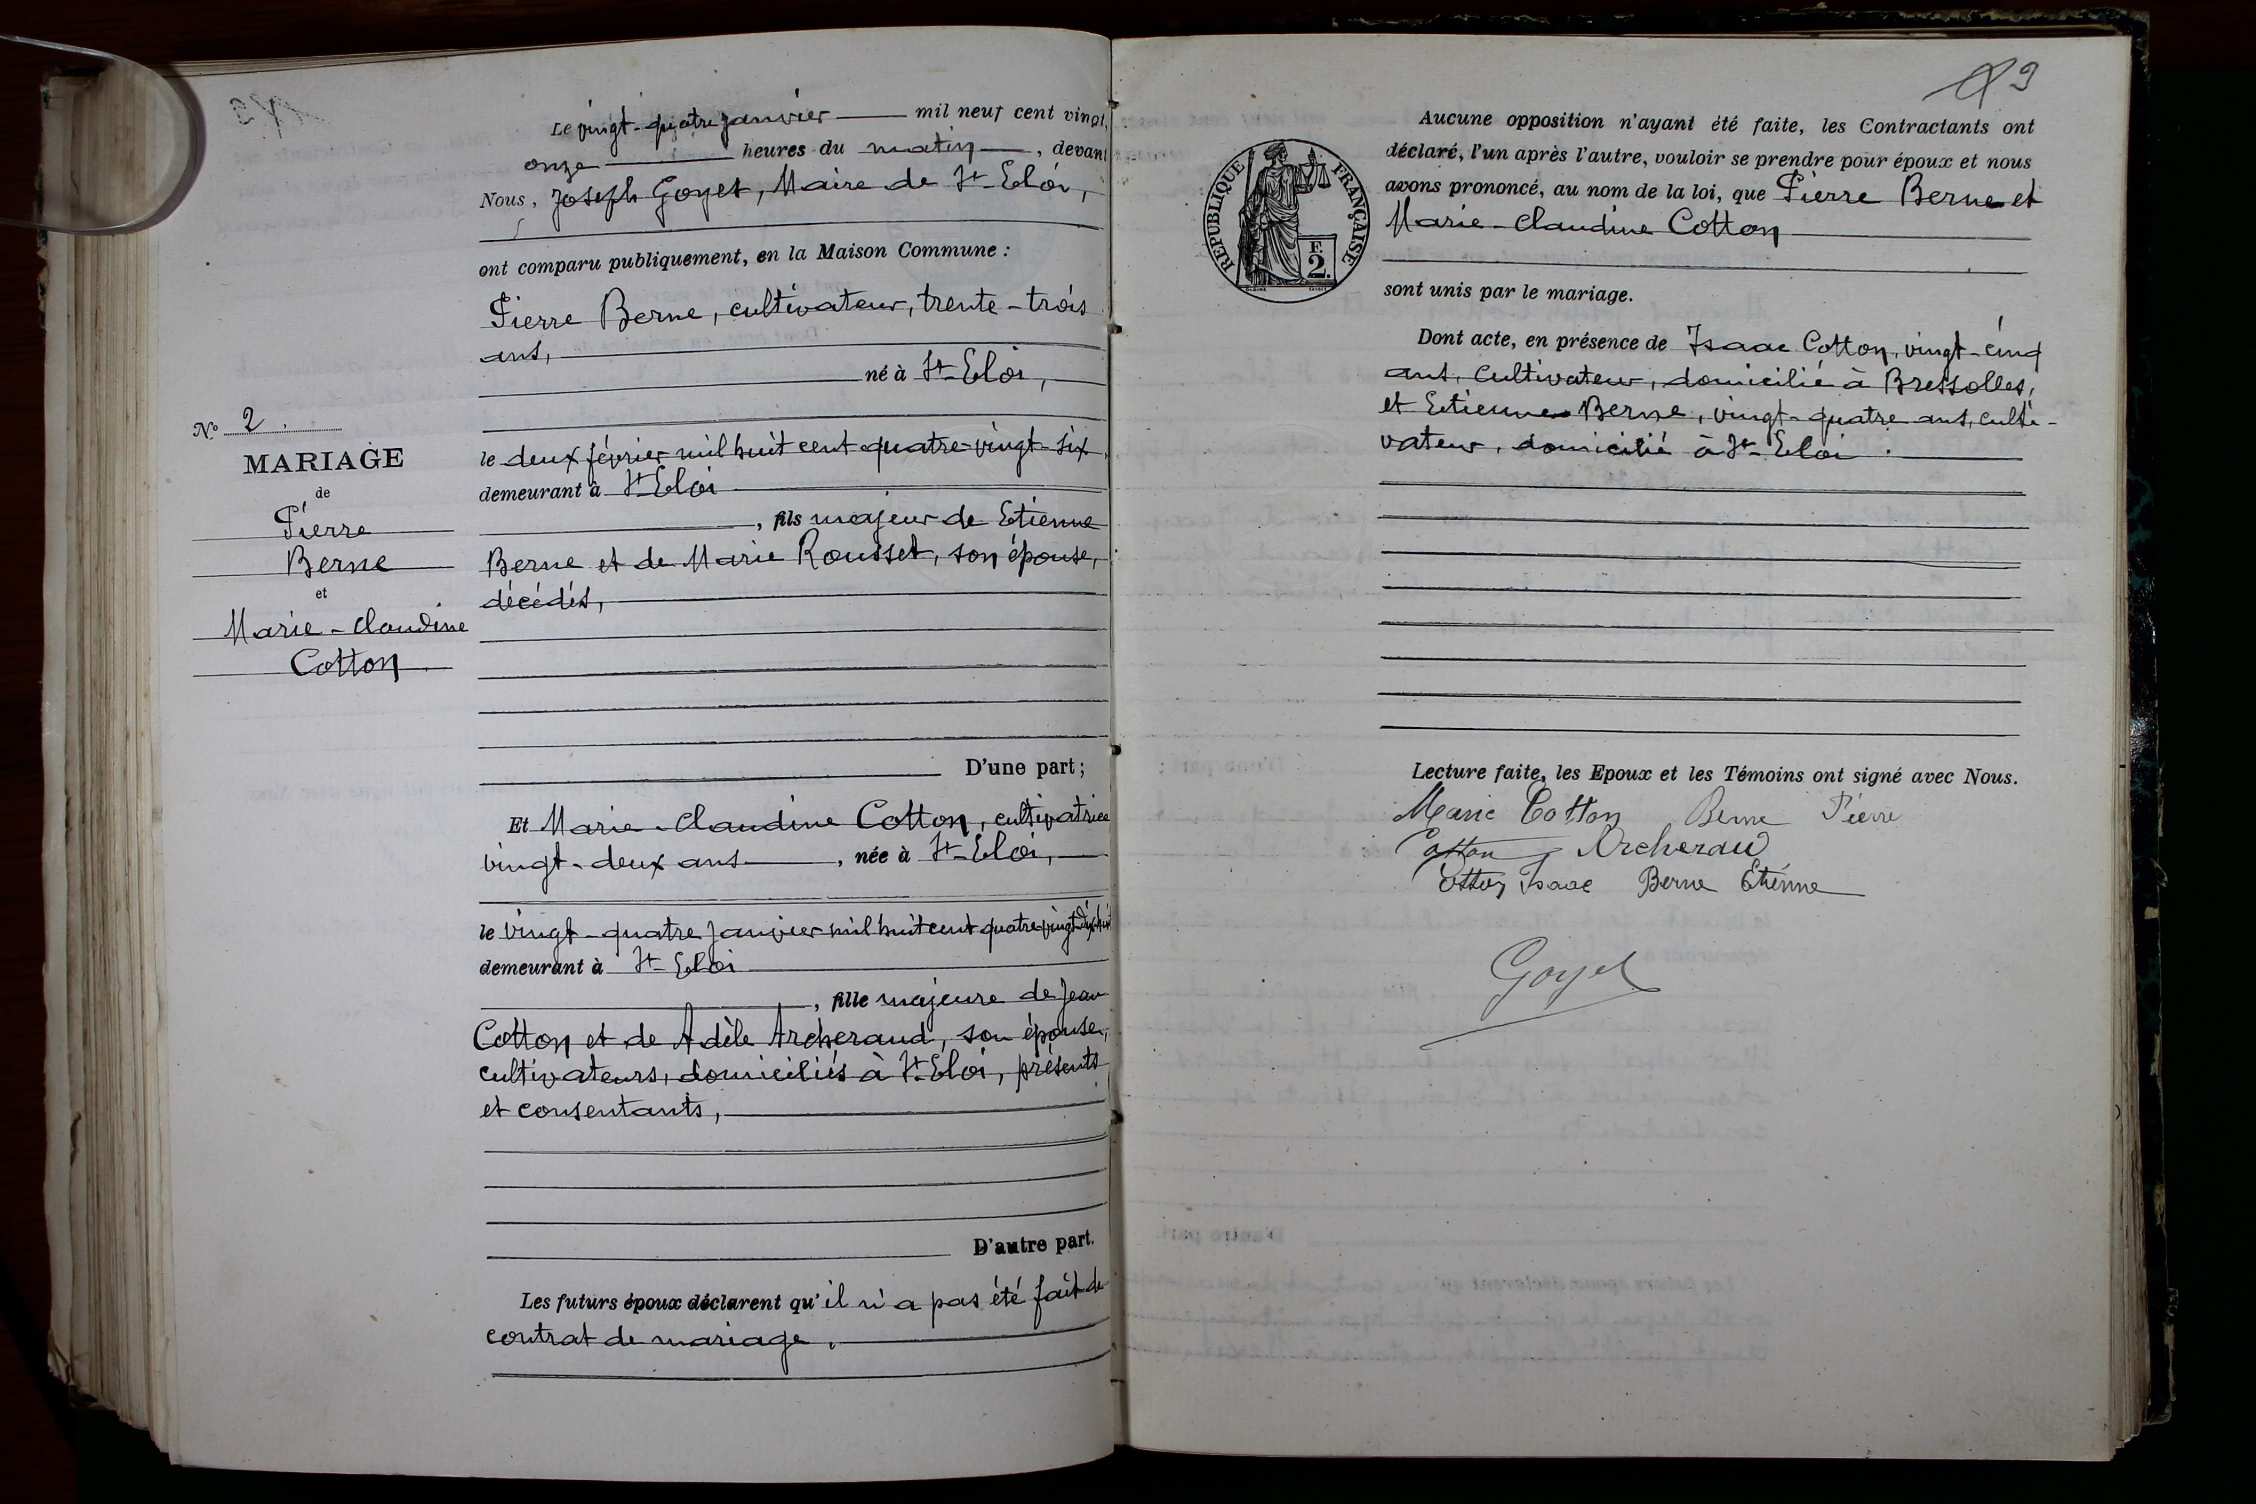 Le vingt-quatre janvier mil neuf cent vingt,
onze heures du matin, devant
Nous, Joseph Goyet, Maire de St-Eloi,
ont comparu publiquement, en la Maison Commune :
Pierre Berne, cultivateur, trente-trois
ans,
né à St-Eloi,
le deux février mil huit cent quatre-vingt-six,
demeurant à St-Eloi
, fils majeur de Etienne
Berne et de Marie Rousset, son épouse,
décédés,
D'une part ;
Et Marie-Claudine Cotton, cultivatrice
vingt-deux ans, née à St-Eloi,
le vingt-quatre janvier mil huit cent quatre-vingt-dix-huit
demeurant à St-Eloi
, fille majeure de Jean
Cotton et de Adèle Archeraud, son épouse,
cultivateurs, domiciliés à St-Eloi, présents
et consentants,
D'autre part.
Les futurs époux déclarent qu'il n'a pas été fait de
contrat de mariage.
No 2.
MARIAGE
de
Pierre
Berne
et
Marie-Claudine
Cotton
9
REPUBLIQUE FRANÇAISE
F.
2.
Aucune opposition n'ayant été faite, les Contractants ont
déclaré, l'un après l'autre, vouloir se prendre pour époux et nous
avons prononcé, au nom de la loi, que Pierre Berne et
Marie-Claudine Cotton
sont unis par le mariage.
Dont acte, en présence de Isaac Cotton, vingt-cinq
ans, cultivateur, domicilié à Bressolles,
et Etienne Berne, vingt-quatre ans, culti-
vateur, domicilié à St-Eloi.
Lecture faite, les Epoux et les Témoins ont signé avec Nous.
Marie Cotton Berne Pierre
Cotton Archeraud
Cotton Isaac Berne Etienne
Goyet